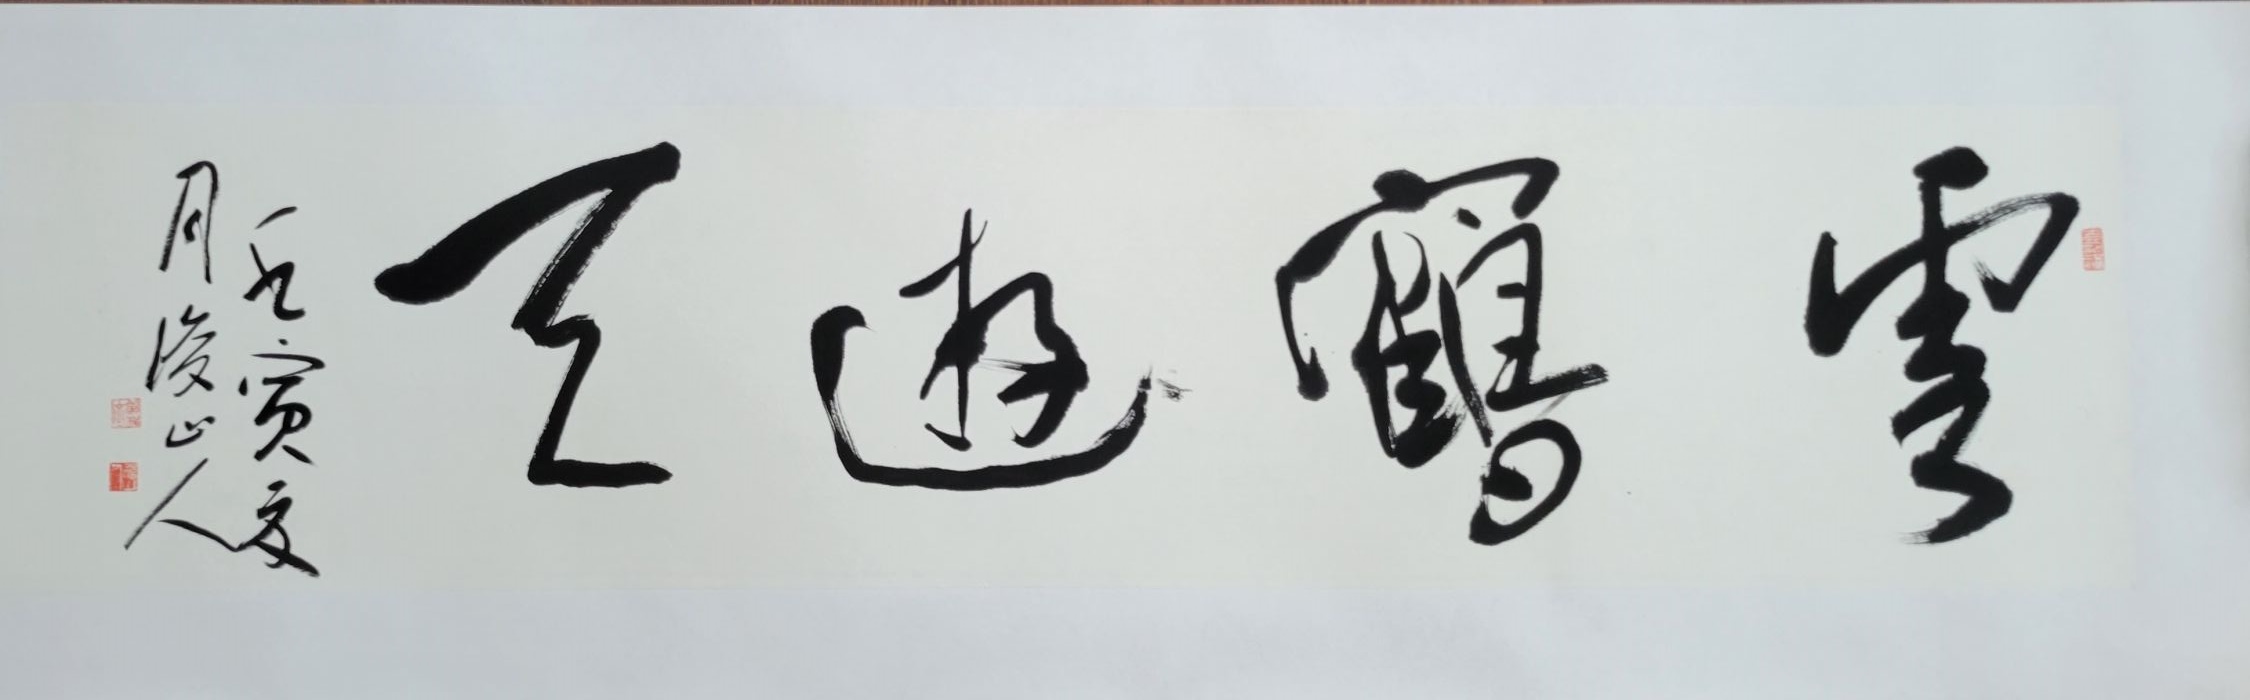 雲鶴遊天
壬寅夏
月俊山人